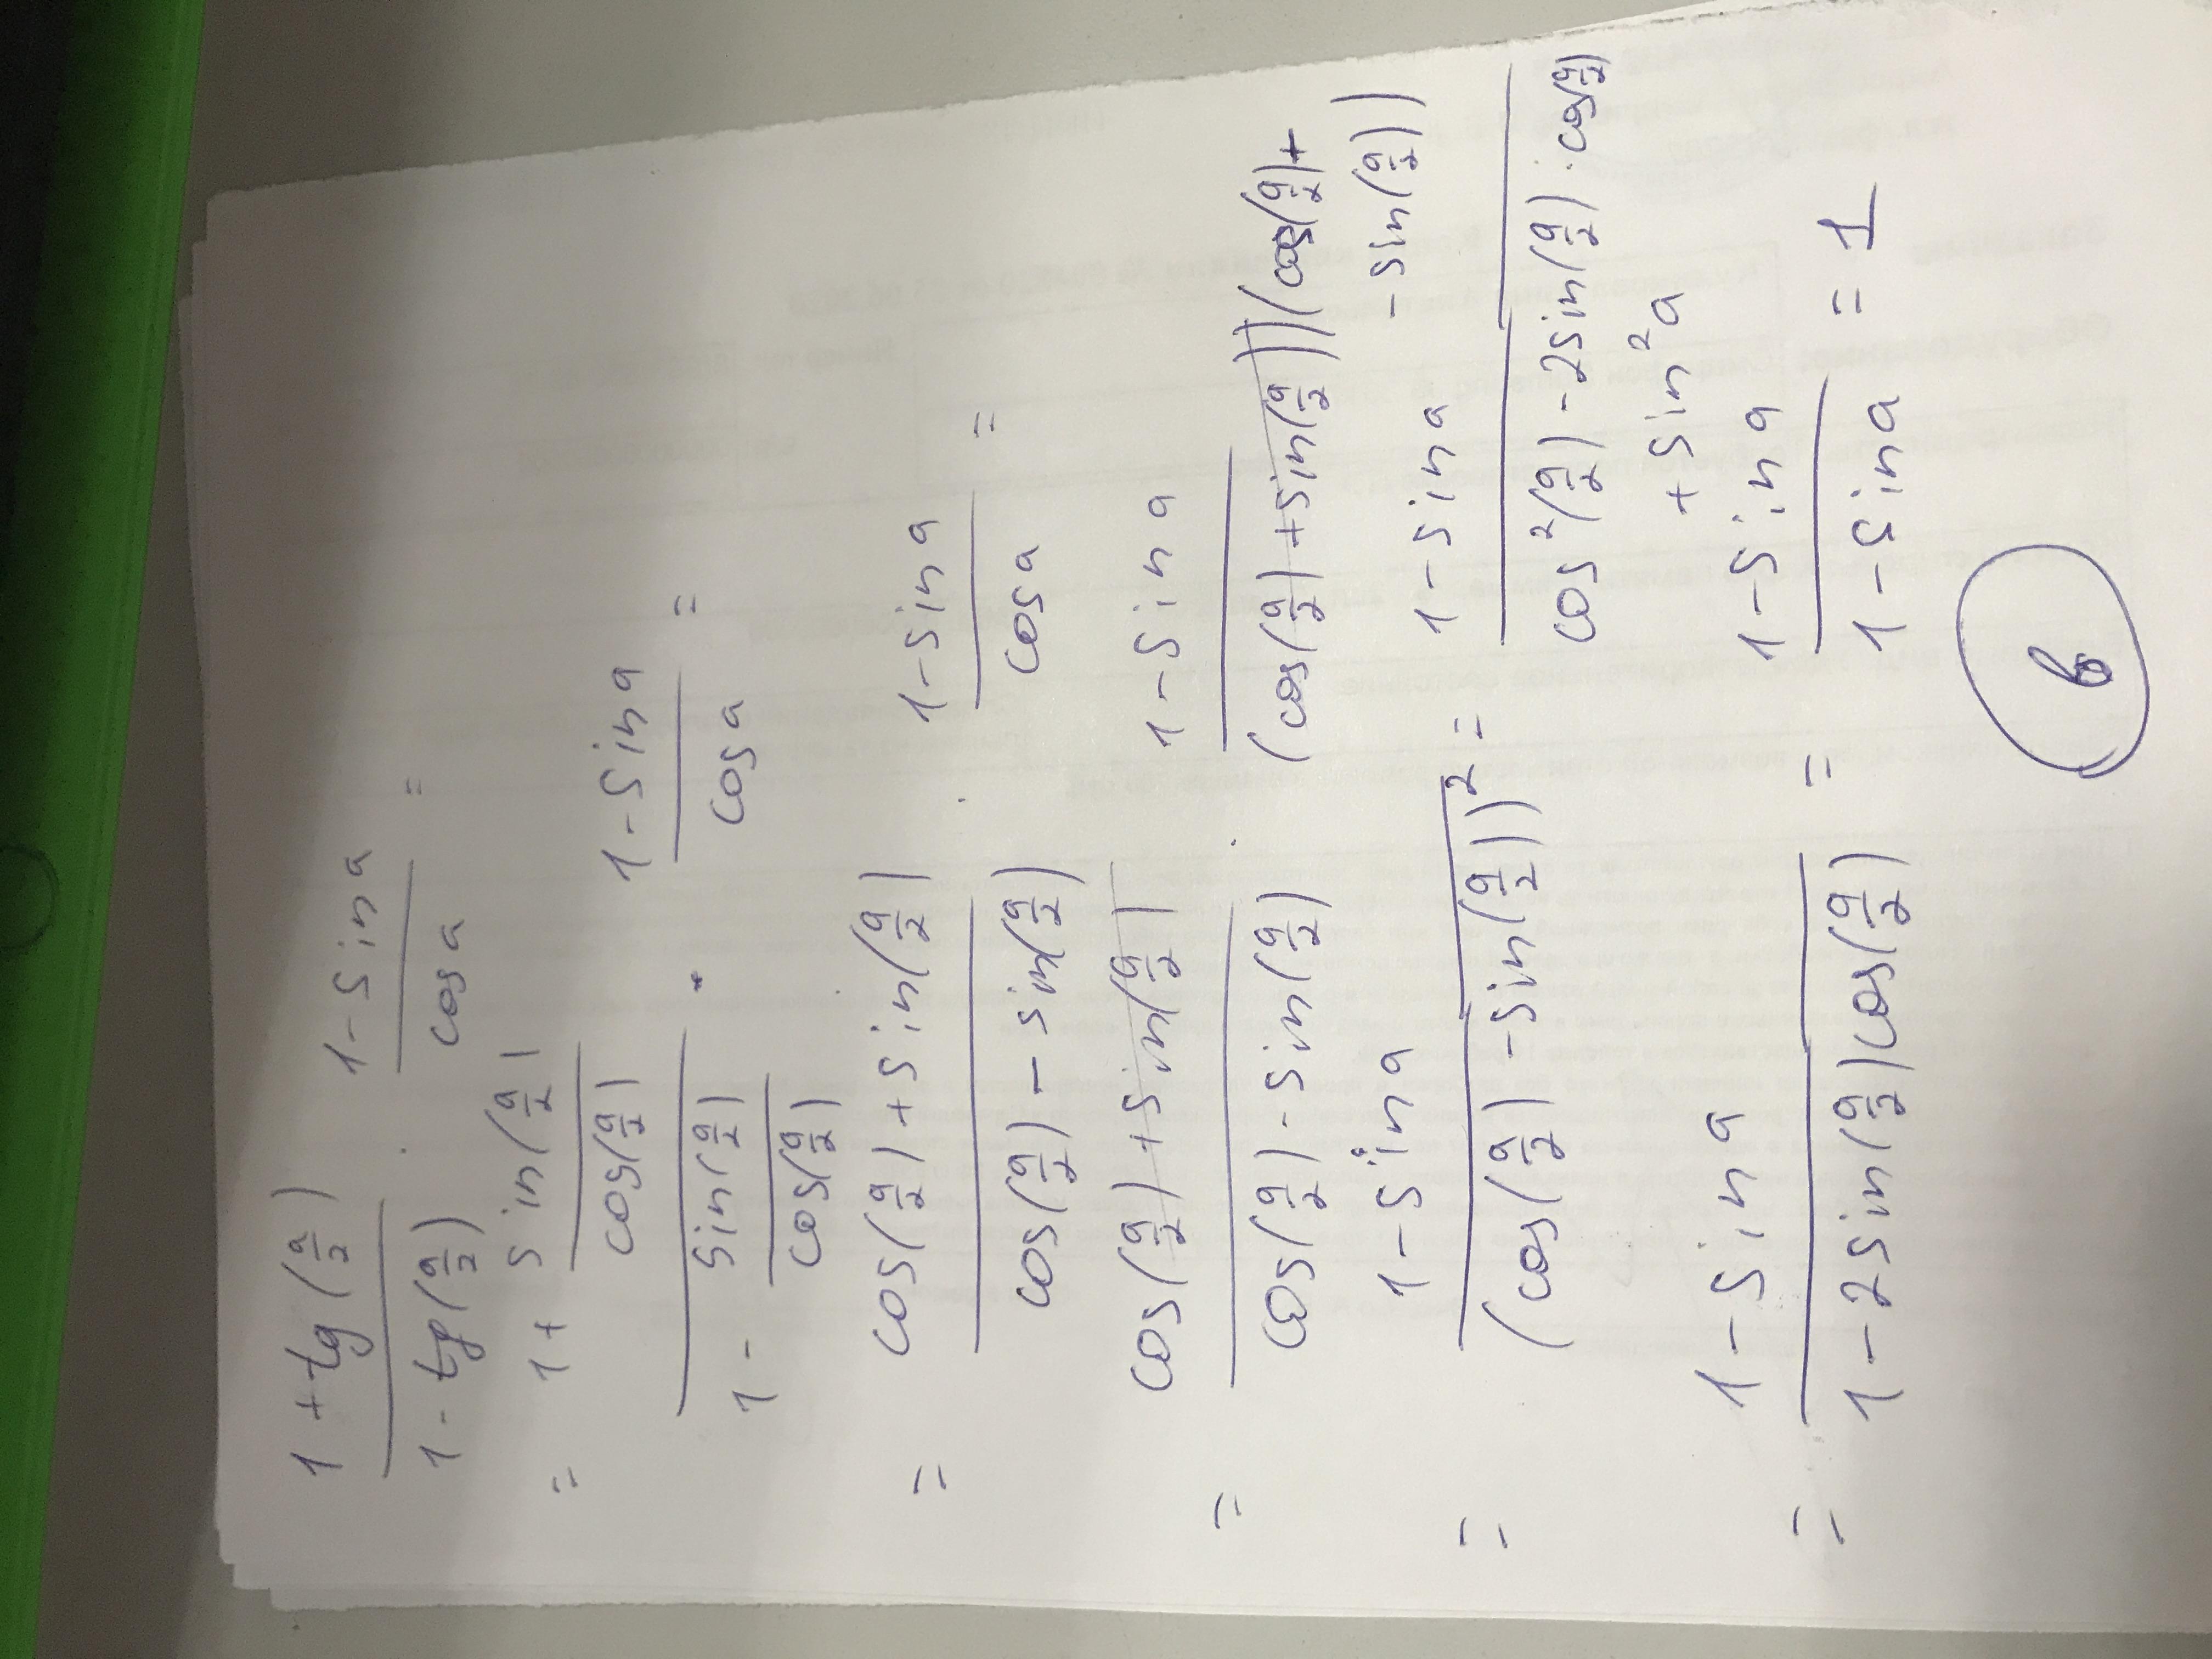 1 + tg(a/2) / 1 - tg(a/2) · 1 - sin a / cos a =
= 1 + sin(a/2) / cos(a/2) / 1 - sin(a/2) / cos(a/2) · 1 - sin a / cos a =
= cos(a/2) + sin(a/2) / cos(a/2) - sin(a/2) · 1 - sin a / cos a =
= cos(a/2) + sin(a/2) / cos(a/2) - sin(a/2) · 1 - sin a / (cos(a/2) + sin(a/2))(cos(a/2) + - sin(a/2))
= 1 - sin a / (cos(a/2) - sin(a/2))² = 1 - sin a / cos²(a/2) - 2sin(a/2) · cos(a/2) + sin²a
= 1 - sin a / 1 - 2sin(a/2)cos(a/2) = 1 - sin a / 1 - sin a = 1